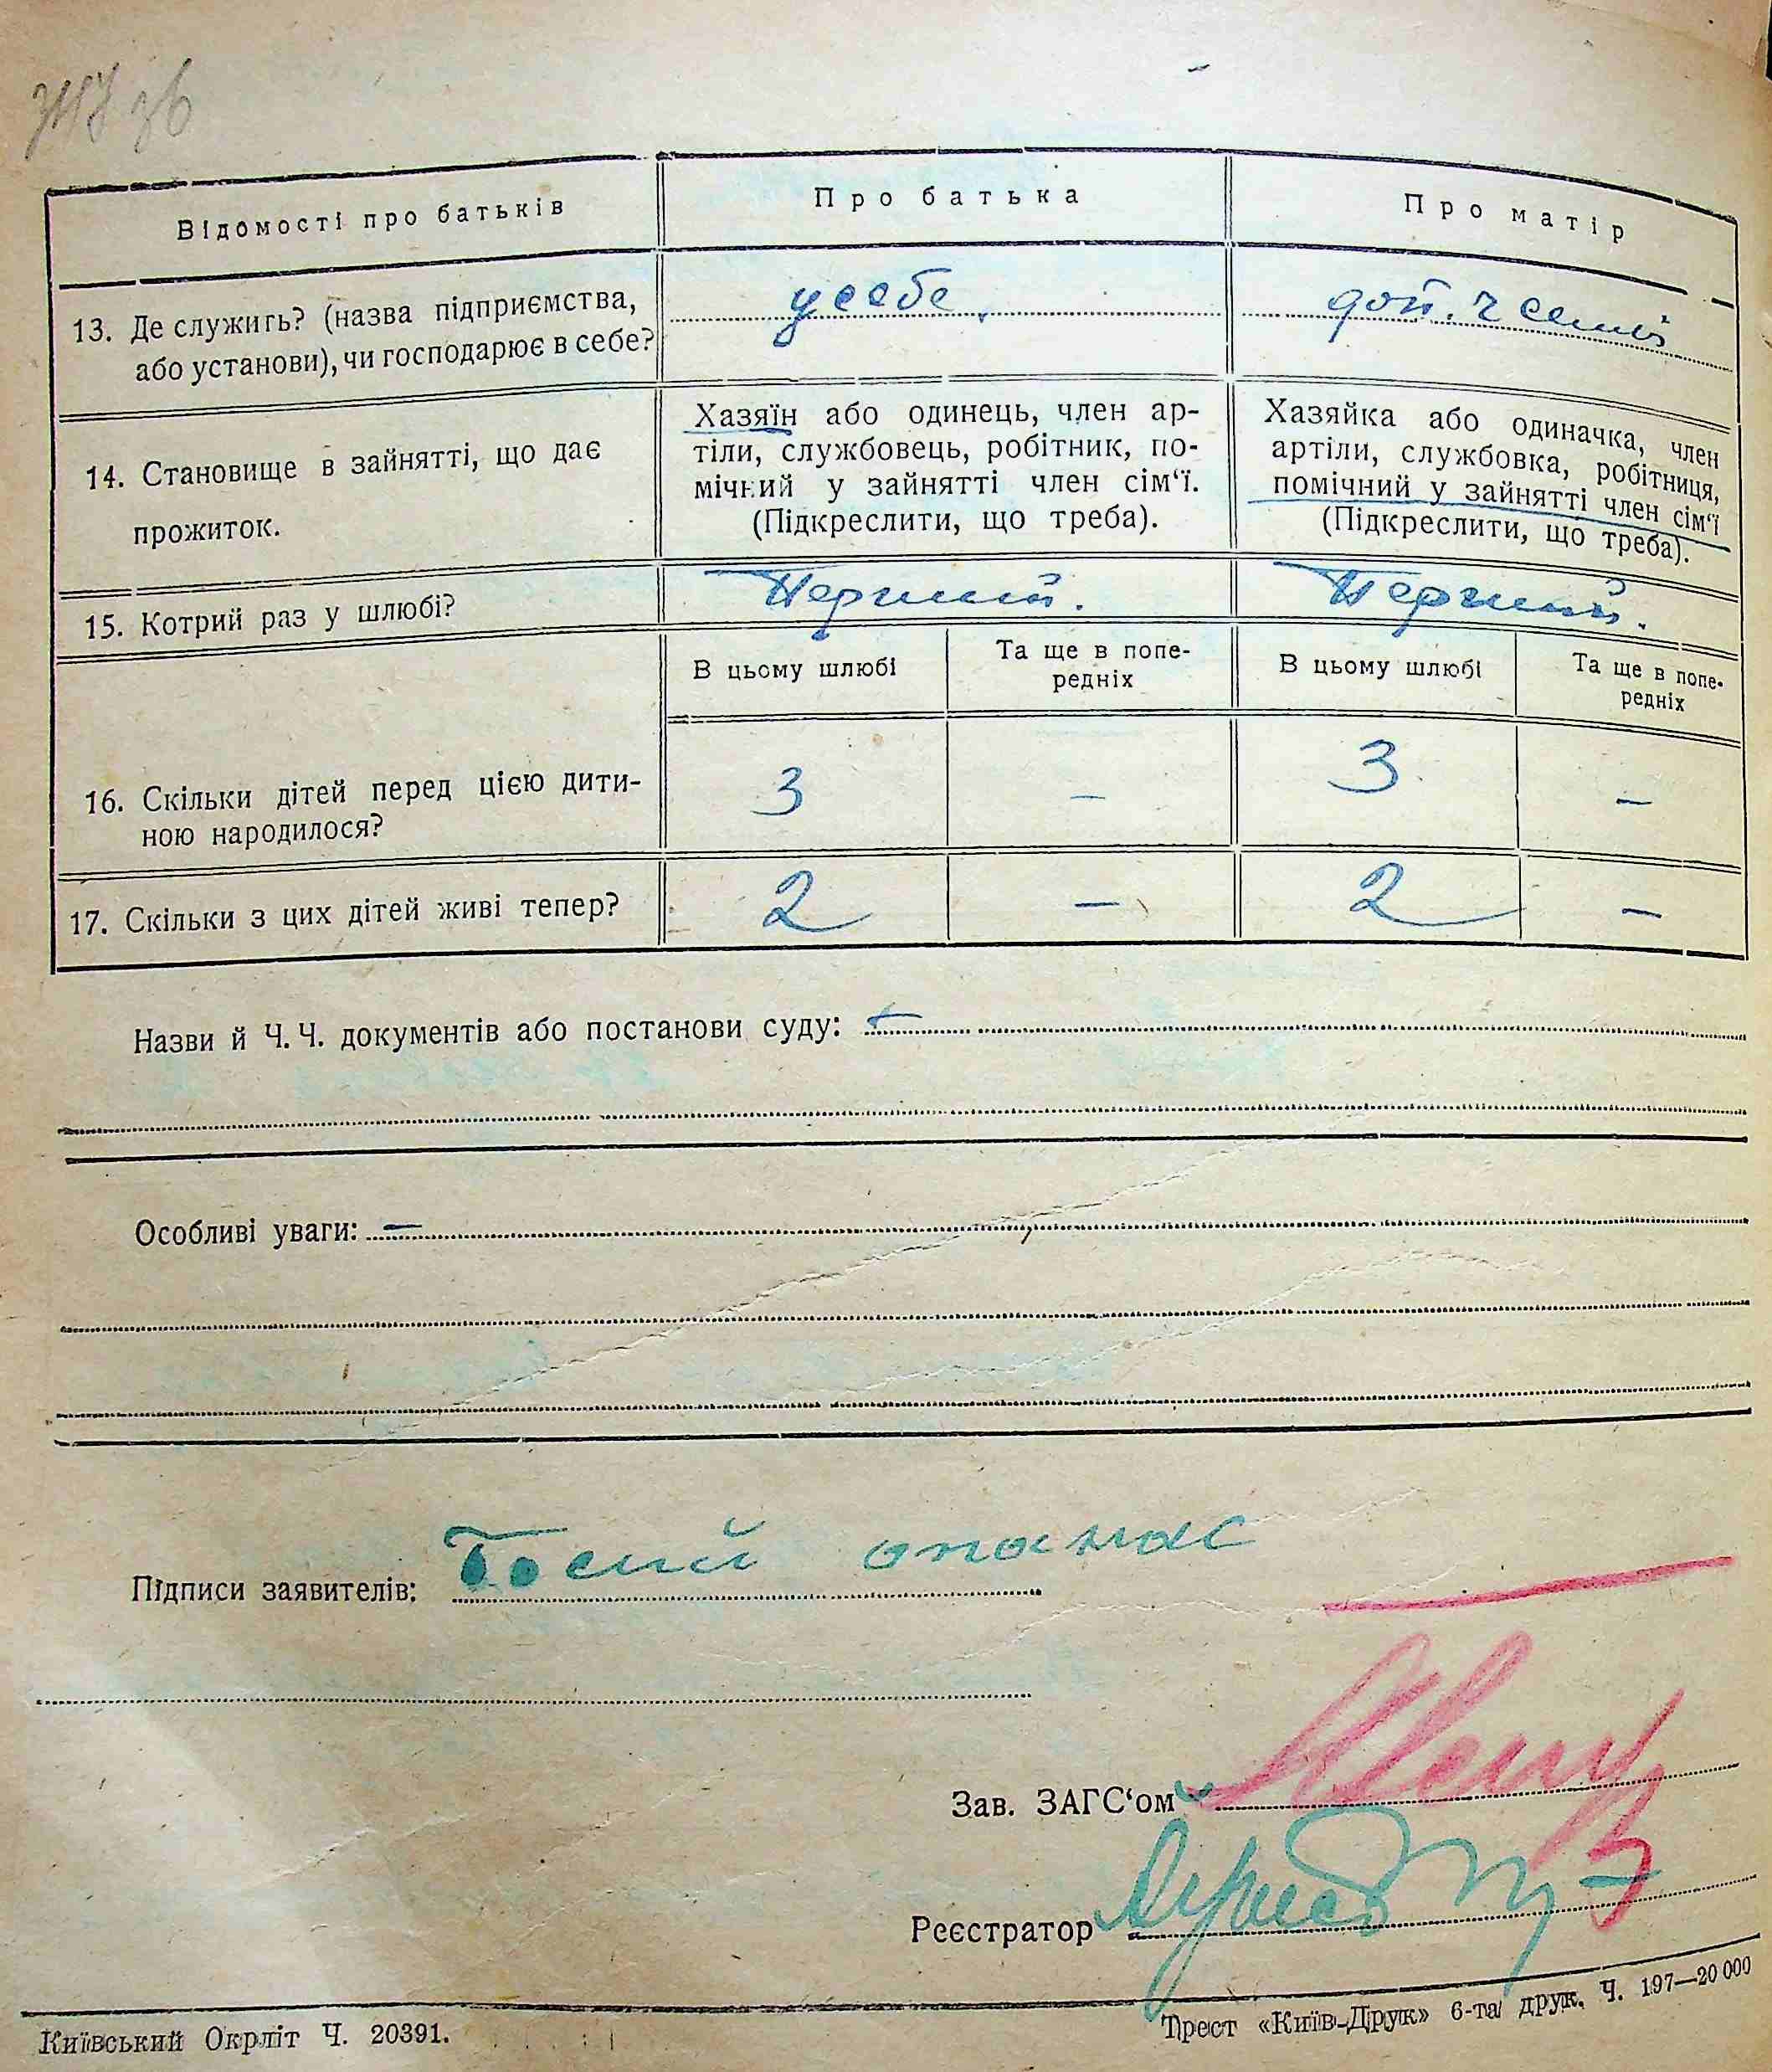 Відомості про батьків
Про батька
Про матір
13. Де служить? (назва підприємства,
або установи), чи господарює в себе?
у себе
доп. ч семї
14. Становище в зайнятті, що дає
прожиток.
Хазяїн або одинець, член ар-
тіли, службовець, робітник, по-
мічний у зайнятті член сім‘ї.
(Підкреслити, що треба).
Хазяйка або одиначка, член
артіли, службовка, робітниця,
помічний у зайнятті член сім‘ї
(Підкреслити, що треба).
15. Котрий раз у шлюбі?
Перший.
Перший.
В цьому шлюбі
Та ще в попе-
редніх
В цьому шлюбі
Та ще в попе-
редніх
16. Скільки дітей перед цією дити-
ною народилося?
3
—
3
—
17. Скільки з цих дітей живі тепер?
2
—
2
—
Назви й Ч. Ч. документів або постанови суду: —
Особливі уваги: —
Підписи заявителів: Босий опанас
Зав. ЗАГС‘ом
Реєстратор
Київський Окрліт Ч. 20391.
Трест «Київ-Друк» 6-та друк. Ч. 197—20 000